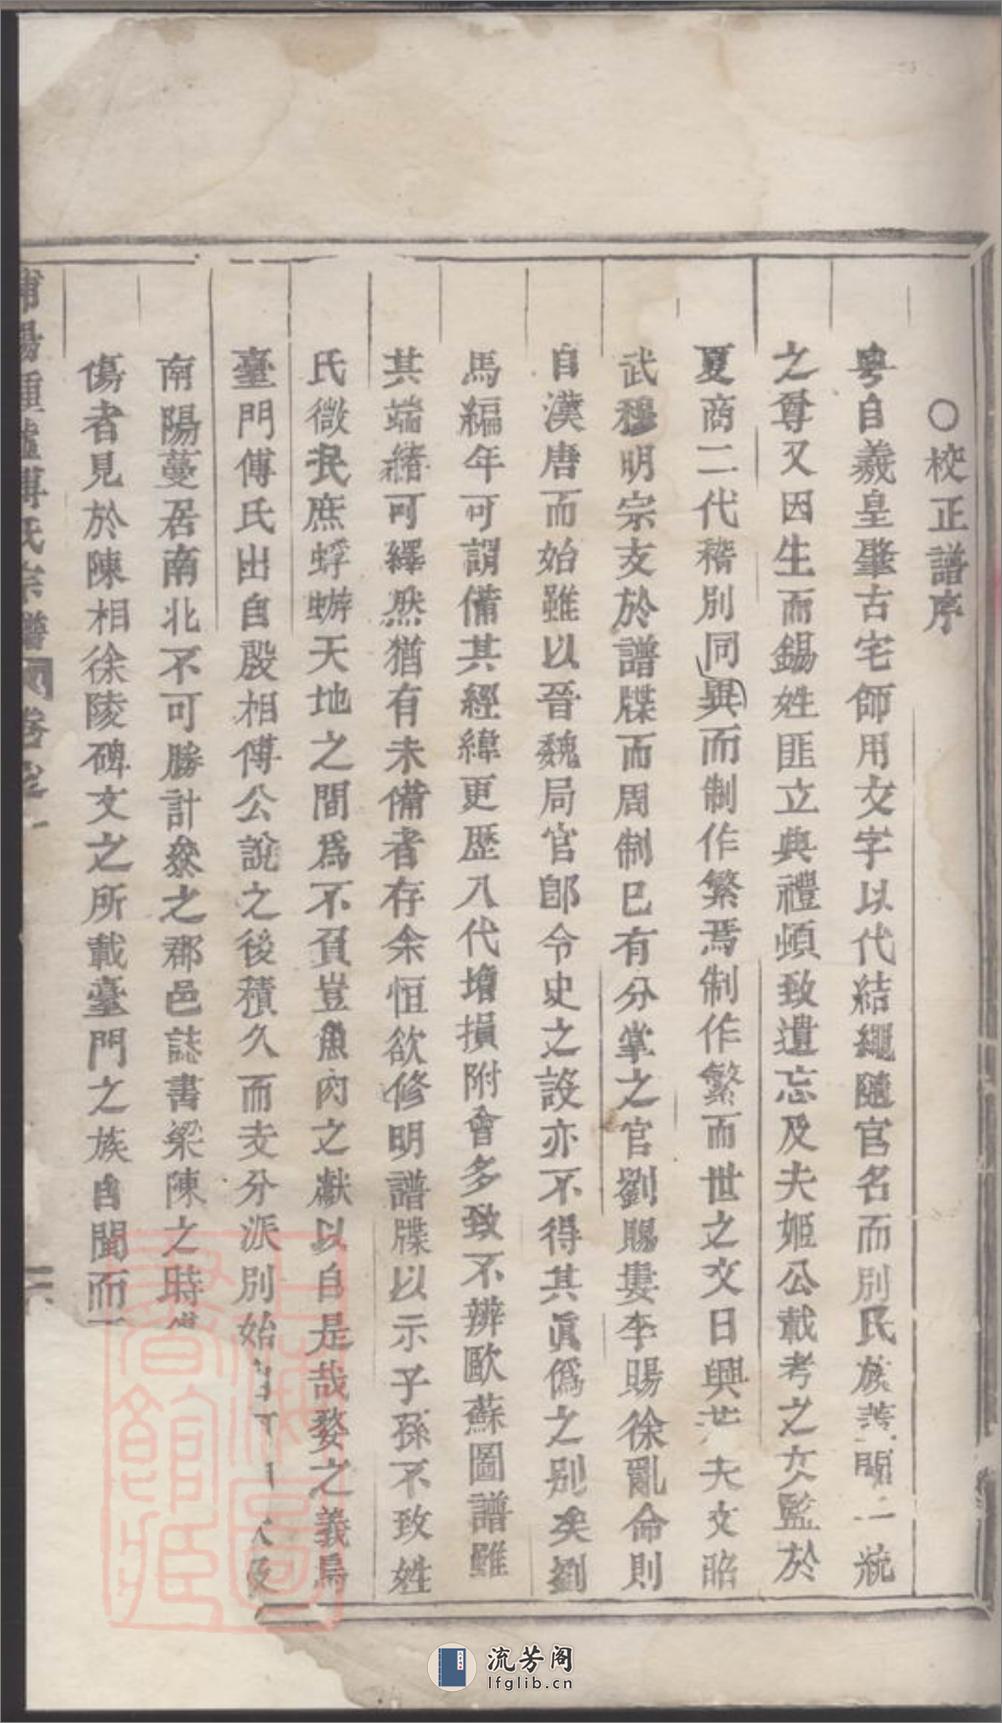 ○校正譜序
粵自羲皇肇古宅師用文字以代結繩隨官名而別氏族黃開一統
之尊又因生而錫姓匪立典禮頓致遺忘及夫姬公載考之文監於
夏商二代稽別同異而制作繁焉制作繁而世之文日興夫文昭
武穆明宗支於譜牒而周制已有分掌之官劉賜婁李賜徐亂命則
自漢唐而始雖以晉魏局官郎令史之設亦不得其眞僞之別矣劉
馬編年可謂備其經緯更歷八代增損附會多致不辨歐蘇圖譜雖
其端緒可繹然猶有未備者存余恒欲修明譜牒以示子孫不致姓
氏微民庶蜉蝣天地之間爲不負豈魚肉之獻以自是哉婺之義烏
臺門傅氏出自殷相傅公說之後積久而支分派別始
南陽蔓居南北不可勝計叅之郡邑誌書梁陳之時
傷者見於陳相徐陵碑文之所載臺門之族自聞而
傅氏宗譜 卷之一
上海圖書館藏
流芳阁
lfglib.cn